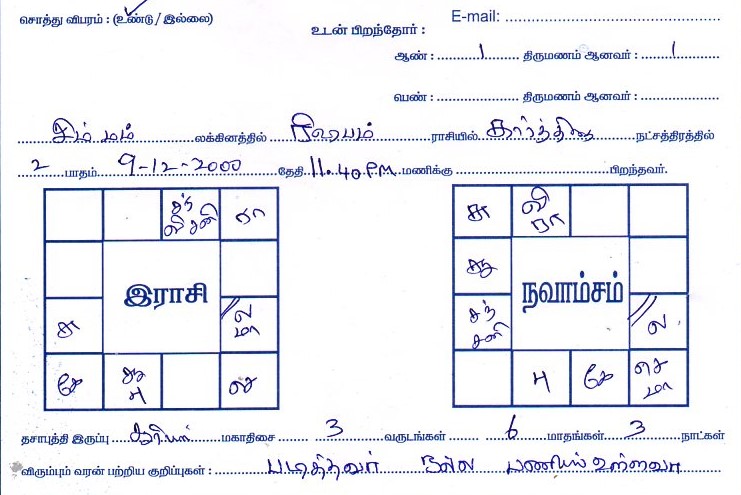 சொத்து விபரம் : (உண்டு / இல்லை)
E-mail:
உடன் பிறந்தோர் :
ஆண் : 1 திருமணம் ஆனவர் : 1
பெண் : திருமணம் ஆனவர் :
சிம்மம் லக்கினத்தில் ரிஷபம் ராசியில் கார்த்திகை நட்சத்திரத்தில்
2 பாதம் 9-12-2000 தேதி 11.40 PM மணிக்கு பிறந்தவர்.
சந்
வி சனி
ரா
சு
ல
மா
கே
சூ
பு
செ
இராசி
சு
வி
ரா
சூ
சந்
சனி
ல
பு
கே
செ
மா
நவாம்சம்
தசாபுத்தி இருப்பு சூரியன் மகாதிசை 3 வருடங்கள் 6 மாதங்கள் 3 நாட்கள்
விரும்பும் வரன் பற்றிய குறிப்புகள் : படித்தவர் நல்ல பணியில் உள்ளவர்